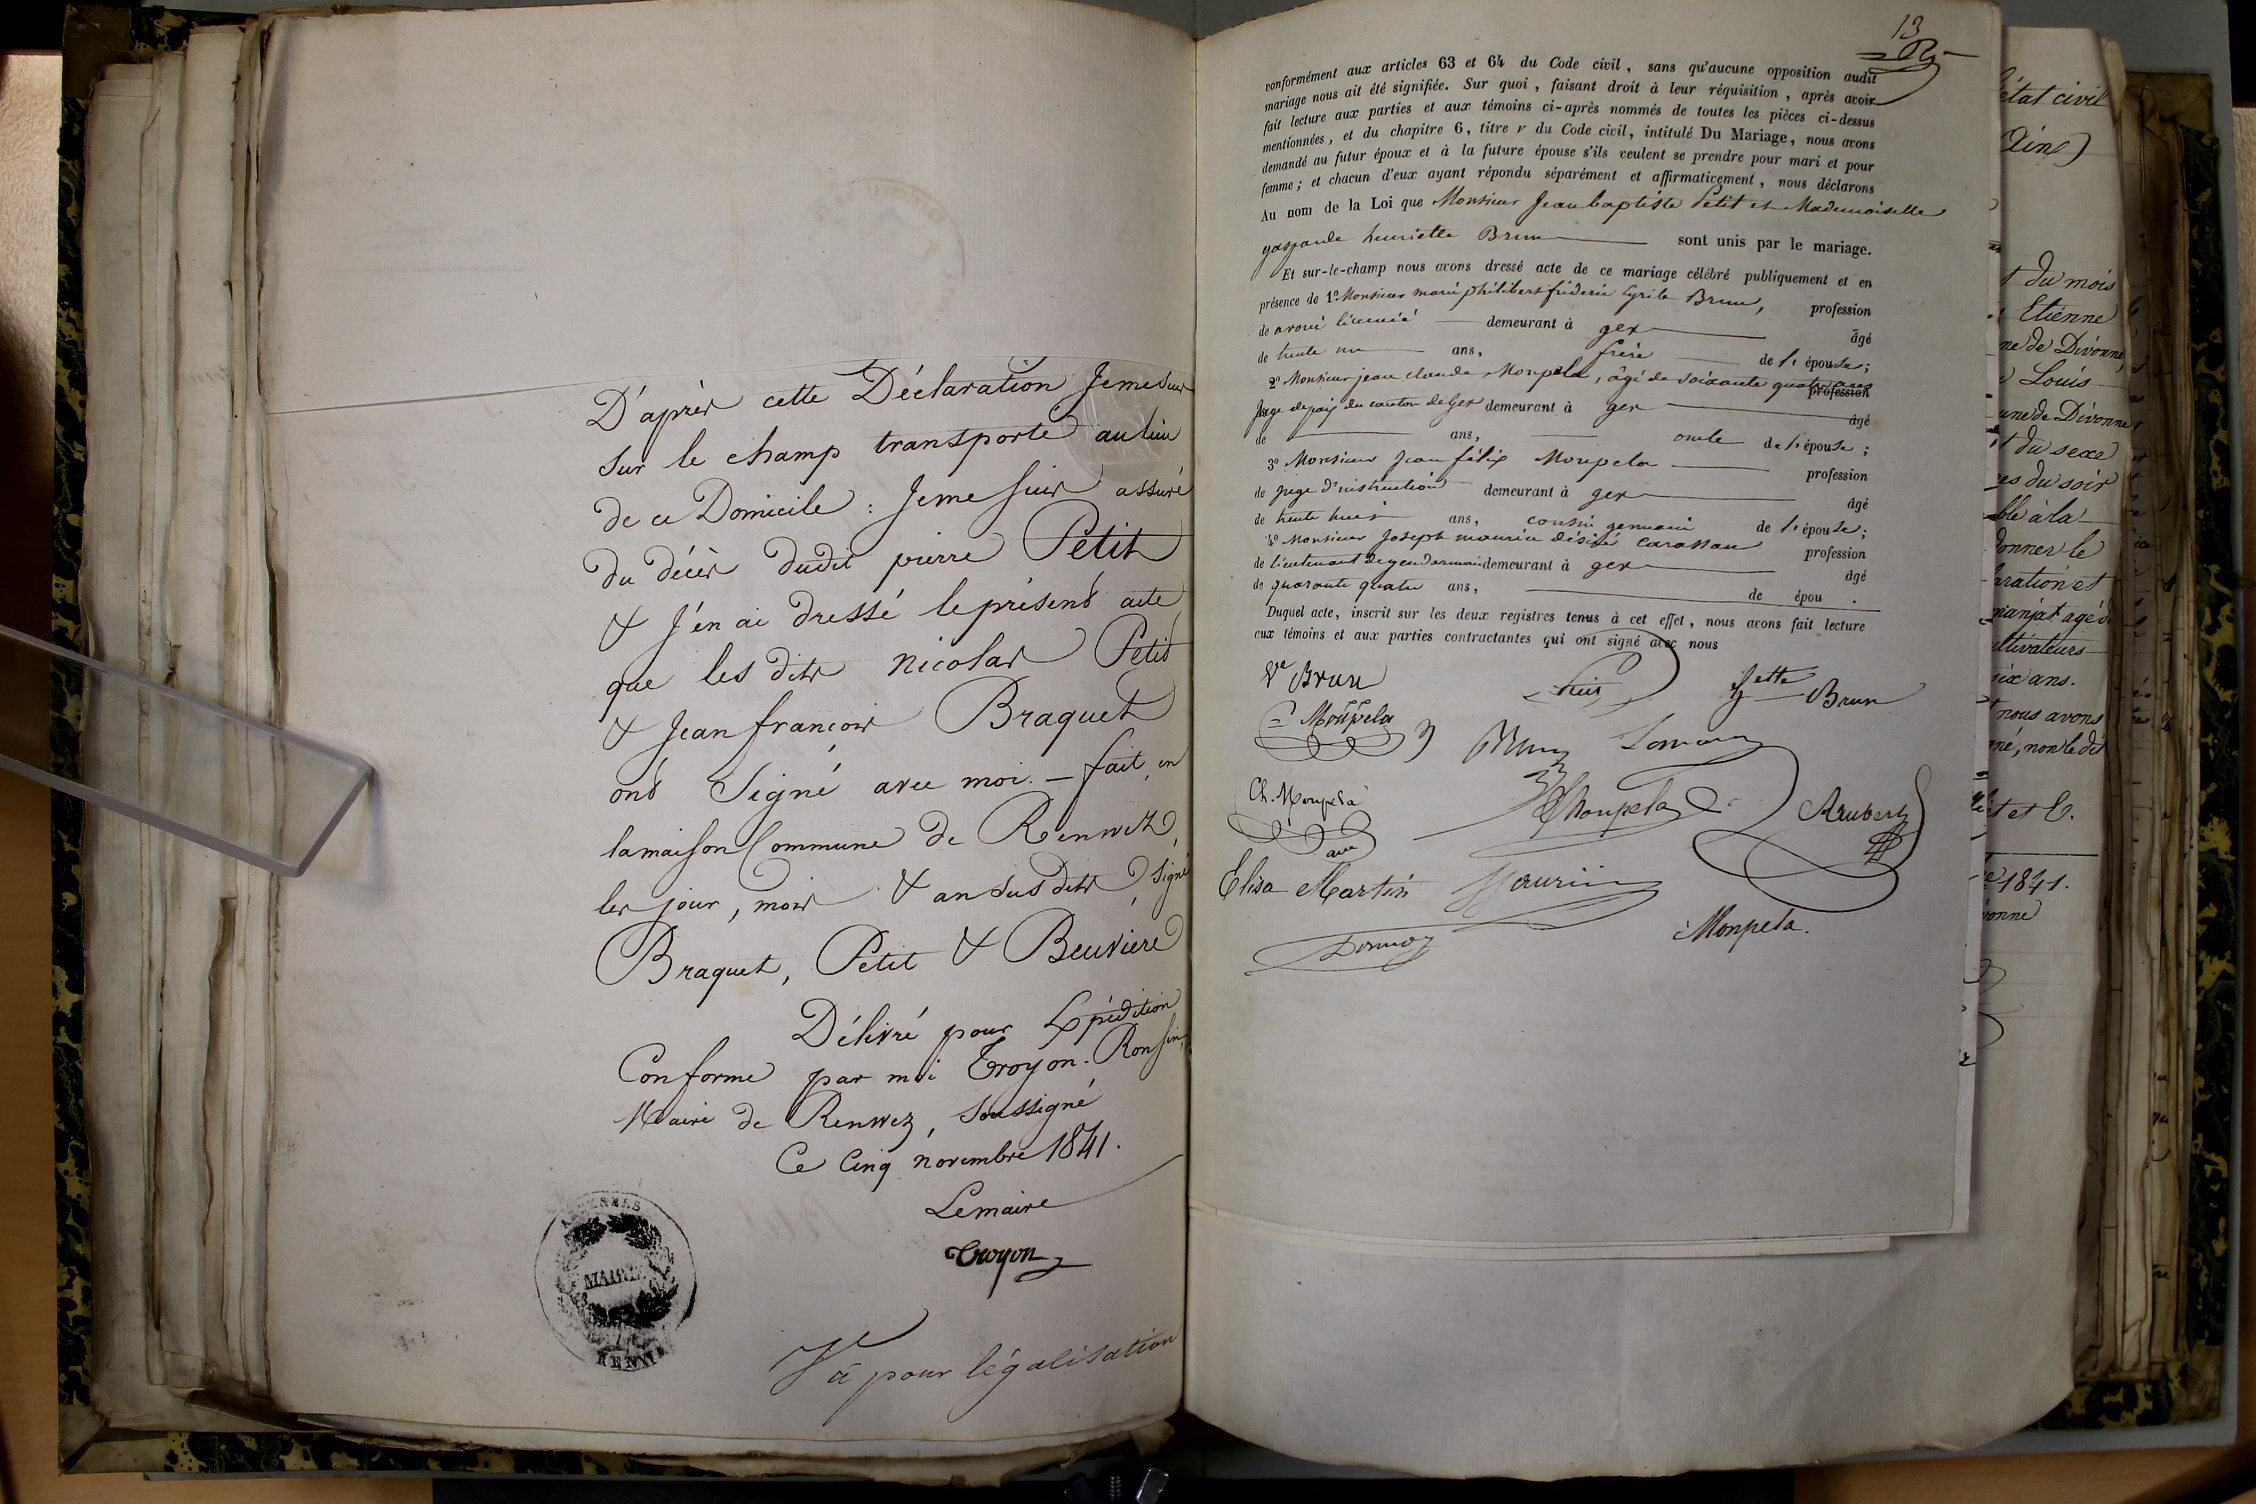 D'après cette Déclaration Je me suis
sur le champ transporté au lieu
de ce Domicile : Je me suis assuré
du décès dudit pierre Petit
& J'en ai dressé le présent acte
que les dits nicolas Petit
& Jean françois Braquet
ont Signé avec moi. — fait en
la maison Commune de Renwez
les jour, mois & an susdits, signé
Braquet, Petit & Beuvière
Délivré pour Expédition
Conforme par moi Troyon-Ronsin,
Maire de Renwez, soussigné
Ce Cinq novembre 1841.
Lemaire
Troyon
ARDENNES
MAIRIE
RENWEZ
Vû pour légalisation
13
conformément aux articles 63 et 64 du Code civil, sans qu'aucune opposition audit
mariage nous ait été signifiée. Sur quoi, faisant droit à leur réquisition, après avoir
fait lecture aux parties et aux témoins ci-après nommés de toutes les pièces ci-dessus
mentionnées, et du chapitre 6, titre v du Code civil, intitulé Du Mariage, nous avons
demandé au futur époux et à la future épouse s'ils veulent se prendre pour mari et pour
femme ; et chacun d'eux ayant répondu séparément et affirmativement, nous déclarons
Au nom de la Loi que Monsieur Jean baptiste Petit et Mademoiselle
gasparde henriette Brun sont unis par le mariage.
Et sur-le-champ nous avons dressé acte de ce mariage célébré publiquement et en
présence de 1º Monsieur marie philibert fréderic Cyrile Brun, profession
de avoué licencié demeurant à gex âgé
de trente un ans, frère de l'épouse ;
2º Monsieur jean claude Monpela, âgé de soixante quatre ans profession
Juge de paix du canton de Gex demeurant à gex âgé
de ans, oncle de l'épouse ;
3º Monsieur Jean félix Monpela profession
de juge d'instruction demeurant à gex âgé
de trente huit ans, cousin germain de l'épouse ;
4º Monsieur Joseph maurice désiré profession
de lieutenant de gendarmerie demeurant à gex âgé
de quarante quatre ans, de épou .
Duquel acte, inscrit sur les deux registres tenus à cet effet, nous avons fait lecture
aux témoins et aux parties contractantes qui ont signé avec nous
Ve Brun Petit Jette Brun
Monpela Brun
Ch. Monpela Monpela
Elisa Martin
Monpela.
l'état civil
(Ain)
du mois
Etienne
ne de Divonne,
Louis
une de Divonne
t du sexe
es du soir
ble à la
donner le
aration et
manjat agé d
ultivateurs
six ans.
nous avons
né, non le dit
et et C.
1841.
vonne